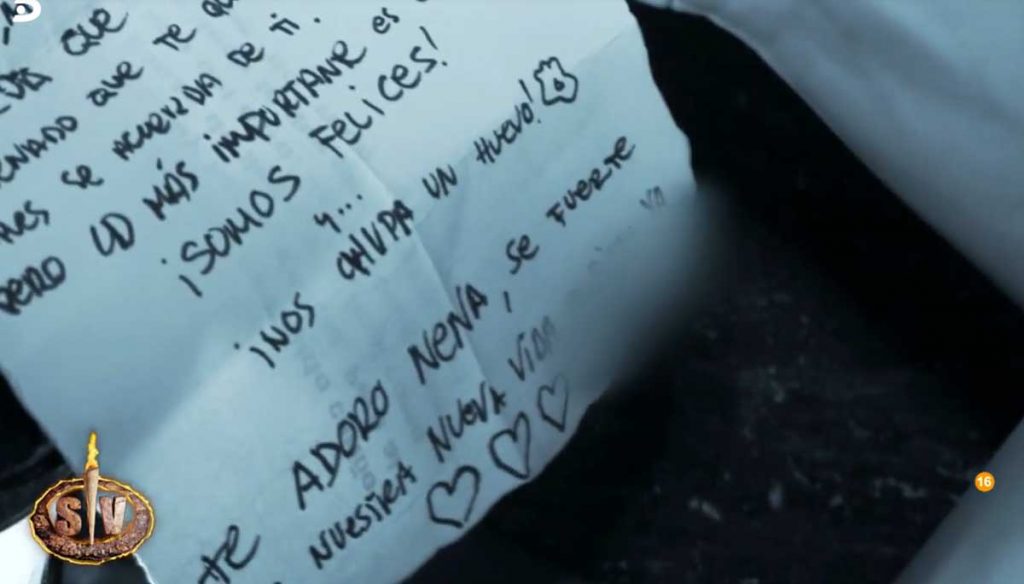 DÍA QUE
QUE TE
SE ACUERDA DE TI.
PERO LO MÁS IMPORTANTE ES
¡SOMOS FELICES!
Y...
¡NOS CHUPA UN HUEVO!
TE ADORO NENA, SE FUERTE
NUESTRA NUEVA VIDA
SV
16